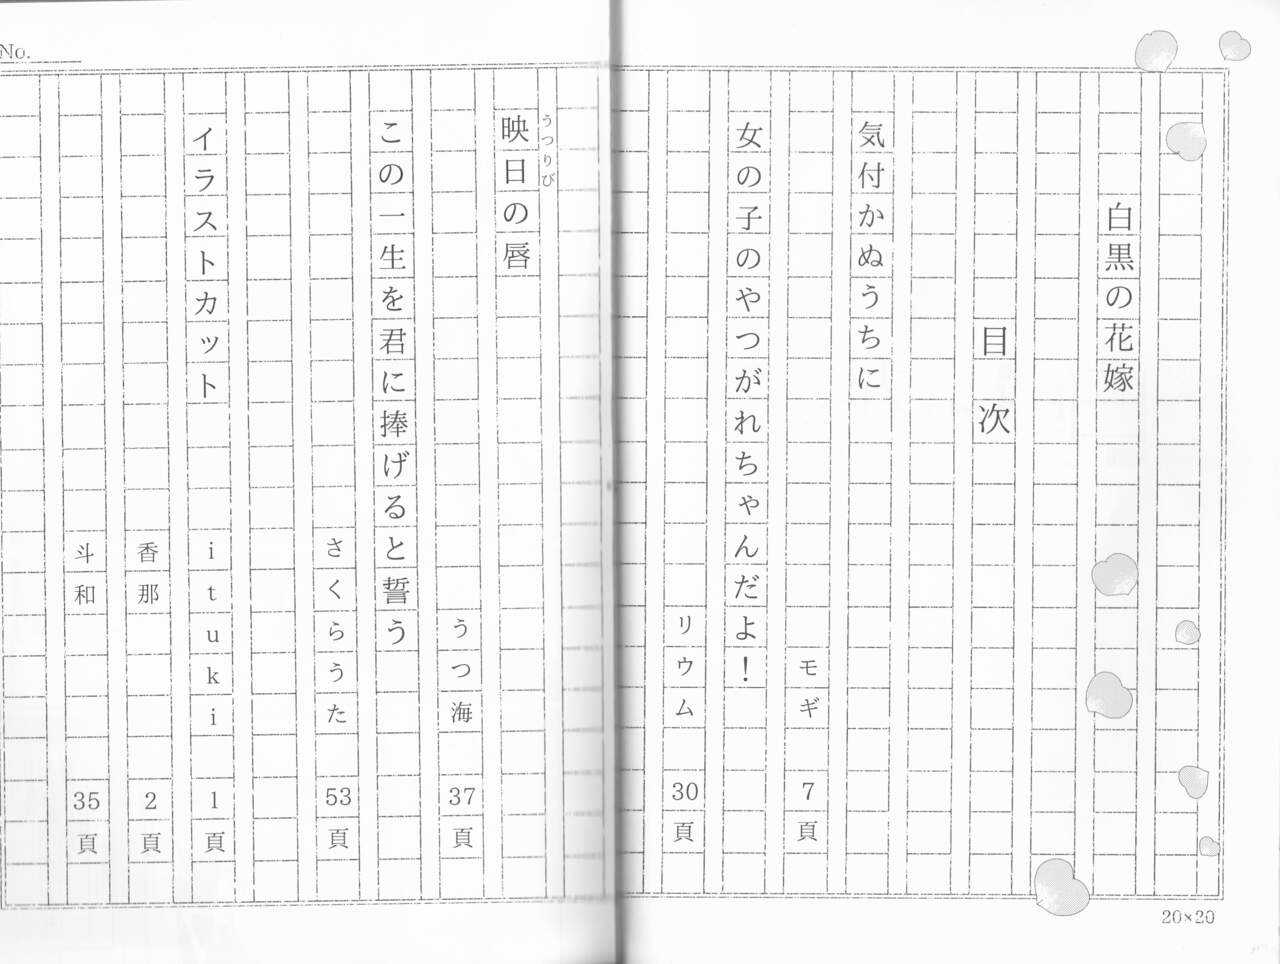 白黒の花嫁
目次
気付かぬうちに
モギ 7頁
女の子のやつがれちゃんだよ！
リウム 30頁
映日の唇
うつりび
うつ海 37頁
この一生を君に捧げると誓う
さくらうた 53頁
イラストカット
ituki 1頁
香那 2頁
斗和 35頁
No.
20×20